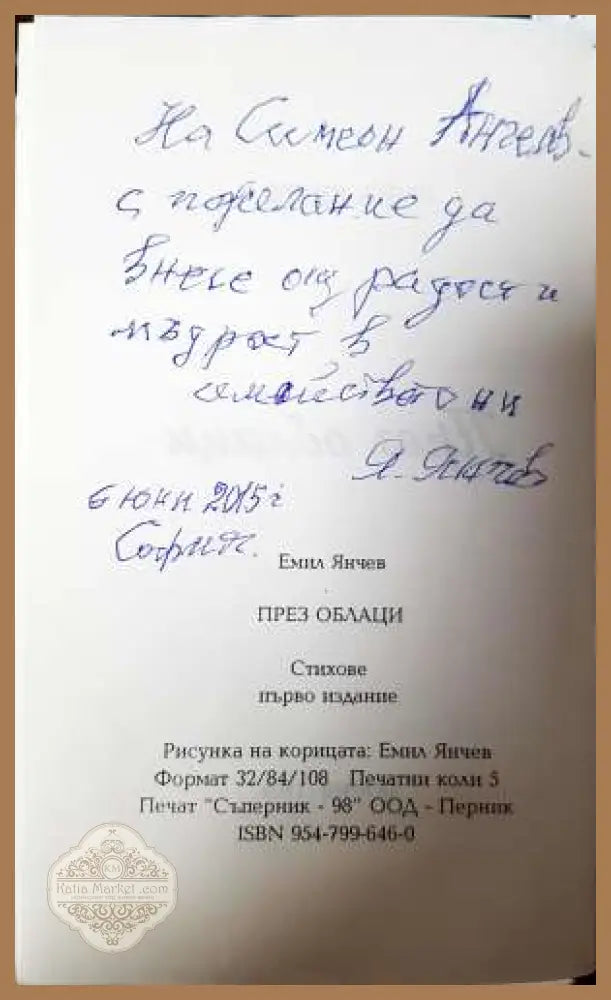 На Симеон Ангелов.
с пожелание да
внесе още радост и
мъдрост в
семейството ни
Я. Янчев
6 юни 2015 г
София.
Емил Янчев
ПРЕЗ ОБЛАЦИ
Стихове
първо издание
Рисунка на корицата: Емил Янчев
Формат 32/84/108 Печатни коли 5
Печат "Съперник - 98" ООД - Перник
ISBN 954-799-646-0
KM
Katia Market .com